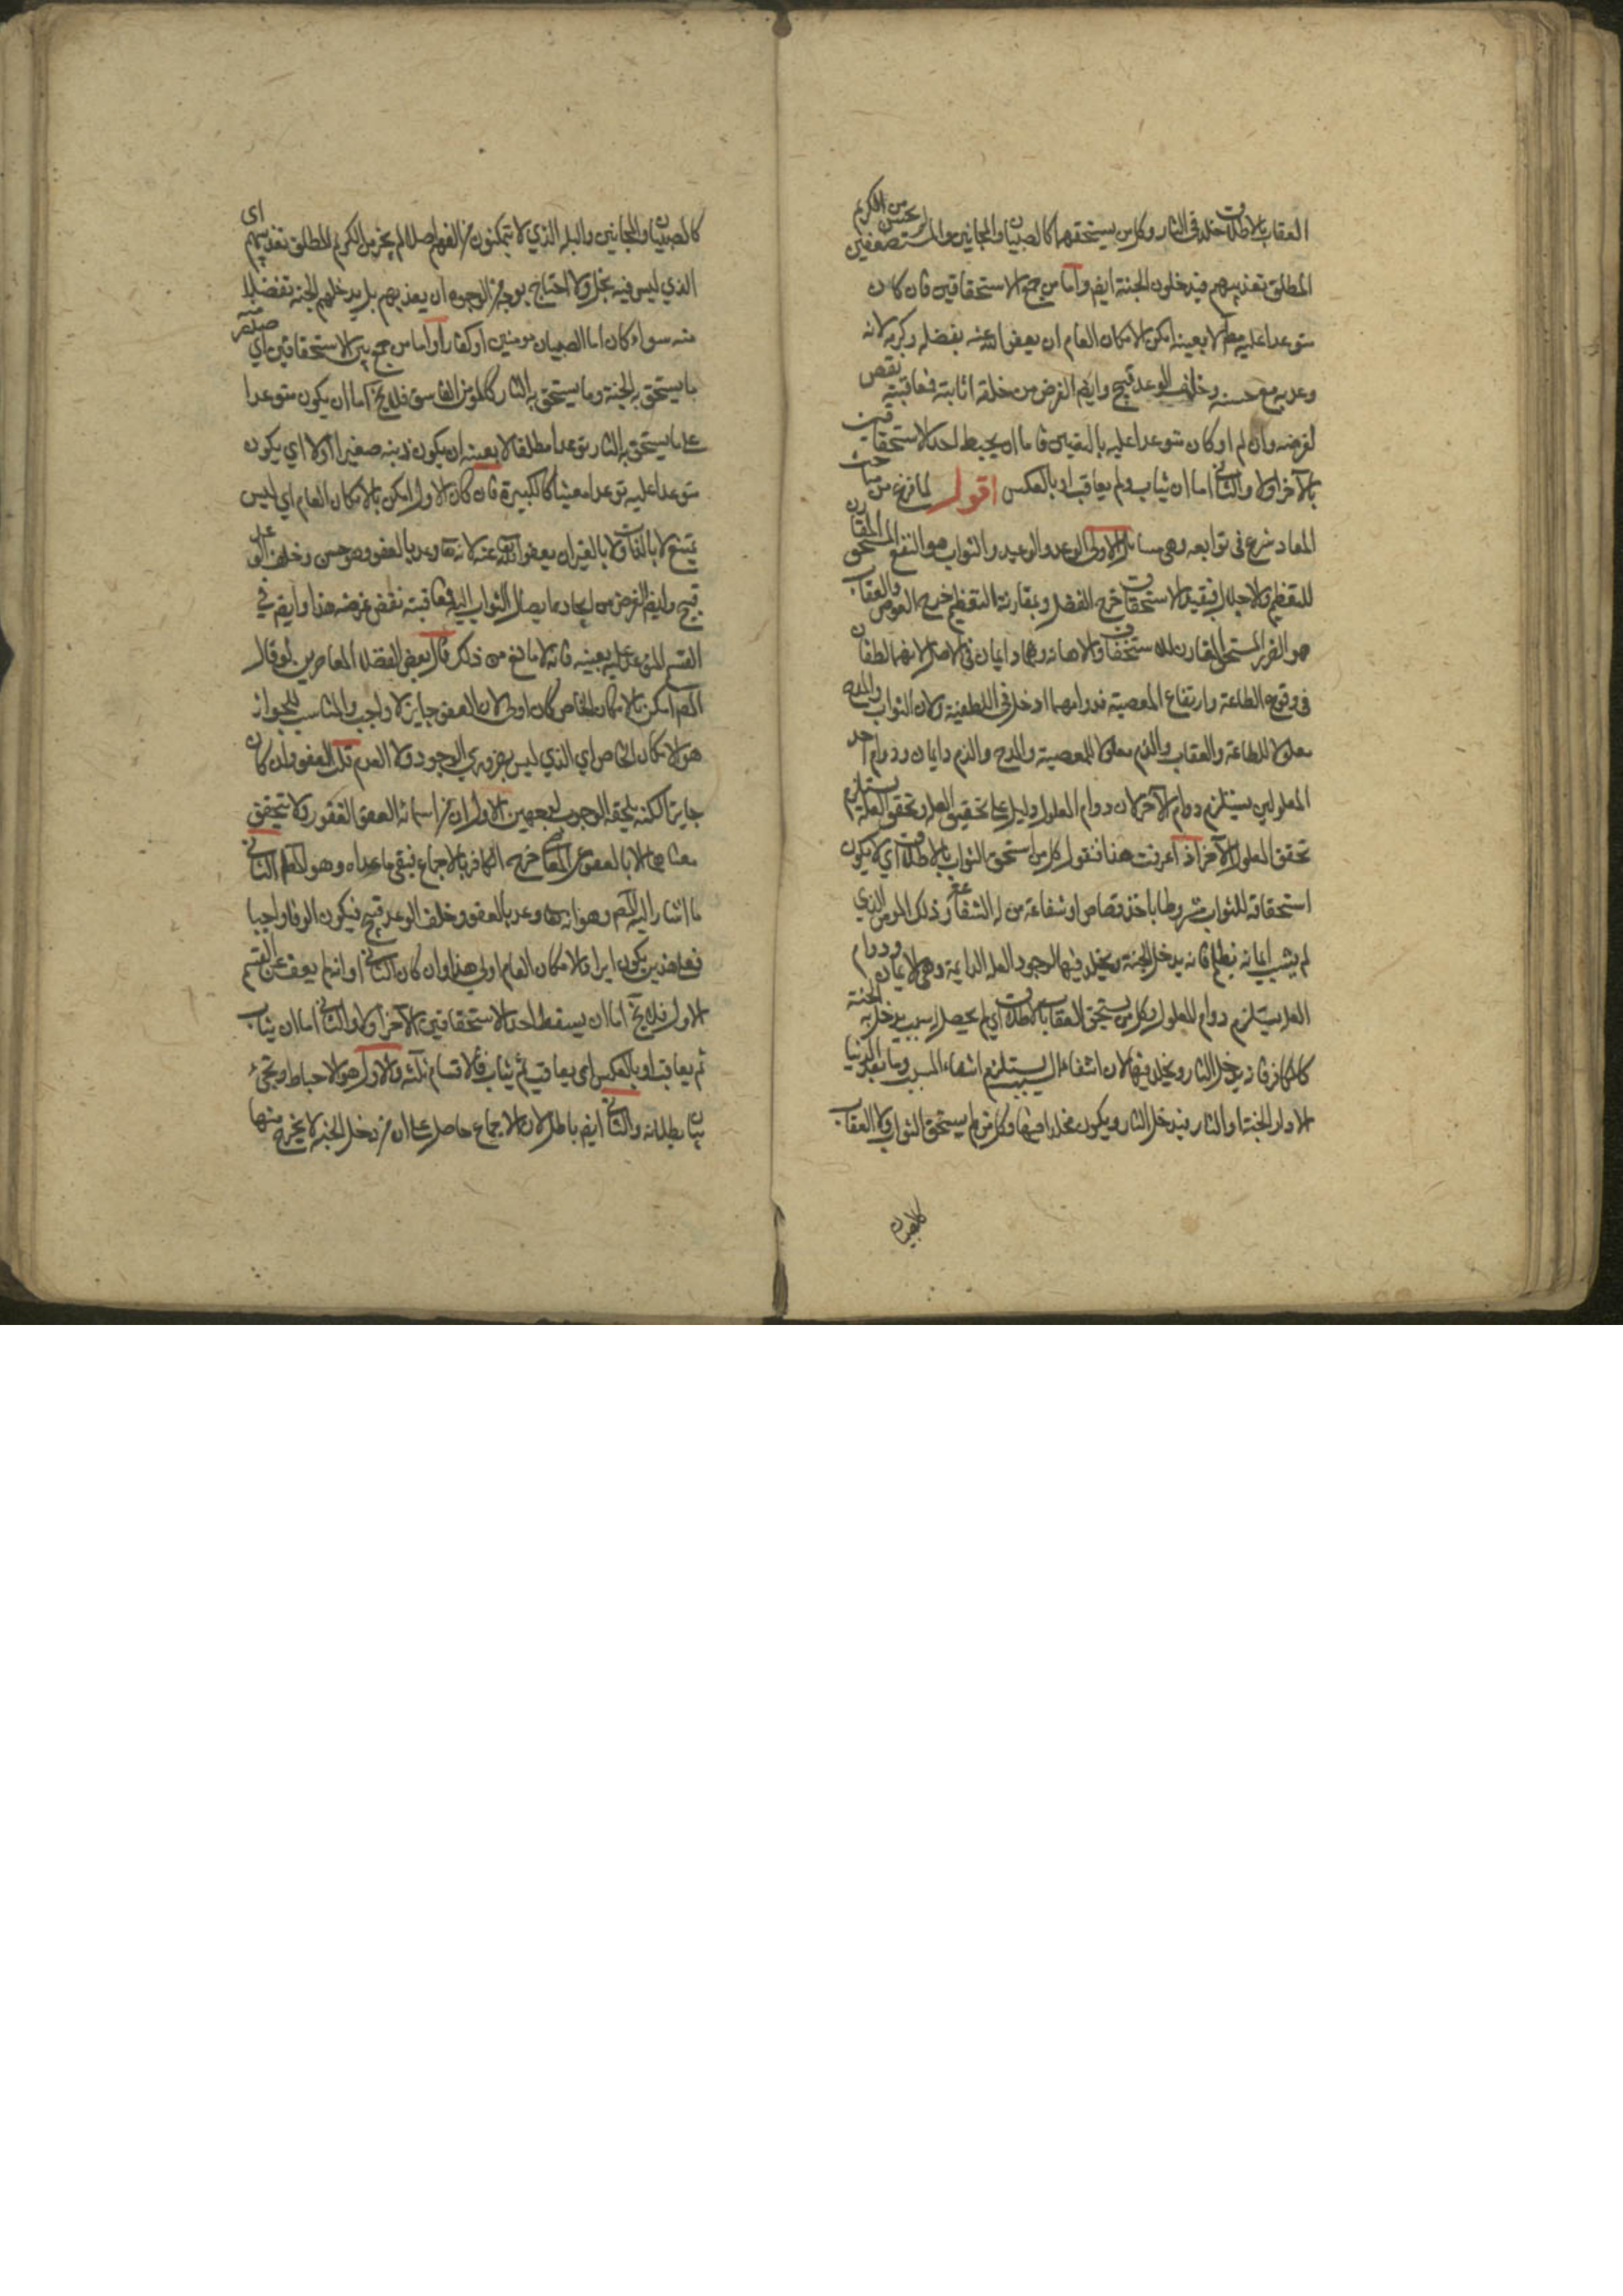 العقاب بالاطلاق خلد في النار وكل من يستحقهما كالصبيان والمجانين والمستضعفين لم يحسن من الكريم
المطلق تعذيبهم فيدخلون الجنة ايضا واما من جمع الاستحقاقين فان كان
متوعدا عليه مطلقا لا بعينه امكن بالامكان العام ان يعفو الله عنه بفضله وكرمه لانه
وعد به مع حسنه وخلف الوعد قبيح وايضا الغرض من خلقه اثابته فمعاقبته نقض
لغرضه وان لم او كان متوعدا عليه بالتعيين فاما ان يحبط احد الاستحقاقين
بالآخر اولا والثاني اما ان يثاب ولم يعاقب او بالعكس اقول لما فرغ من مباحث
المعاد شرع في توابعه وهي مسائل الاولى الوعد والوعيد والثواب هو النفع المستحق المقارن
للتعظيم والاجلال فبقيد الاستحقاق خرج التفضل وبمقارنة التعظيم خرج العوض والعقاب
هو الضرر المستحق المقارن للاستخفاف والاهانة وهما دايمان في الاصل لانهما لطفان
في وقوع الطاعة وارتفاع المعصية فدوامهما ادخل في اللطفية ولان الثواب والمدح
معلولا للطاعة والعقاب والذم معلولا للمعصية والمدح والذم دايمان ودوام احد
المعلولين يستلزم دوام الآخر لان دوام المعلول دليل على تحقق العلة وتحقق العلة يستلزم
تحقق المعلول الآخر اذا عرفت هذا فنقول كل من استحق الثواب بالاطلاق اي لا يكون
استحقاقه للثواب مشروطا باخذ قصاص او شفاعة من له الشفاعة وذلك المؤمن الذي
لم يشب ايمانه بظلم فانه يدخل الجنة ويخلد فيها لوجود العلة الدايمة وهي الايمان ودوام
العلة يستلزم دوام المعلول وكل من يستحق العقاب بالاطلاق اي لم يحصل له سبب يدخل به الجنة
كالكافر فانه يدخل النار ويخلد فيها لان انتفاء السبب يستلزم انتفاء المسبب وما بعد الدنيا
الا دار الجنة او النار فيدخل النار ويكون مخلدا فيها وكل من لم يستحق الثواب ولا العقاب
كالصبيان
كالصبيان والمجانين والبله الذي لا يتمكنون من الفهم اصلا لم يجز من الكريم المطلق تعذيبهم اي
الذي ليس فيه بخل ولا احتياج بوجه من الوجوه ان يعذبهم بل يدخلهم الجنة تفضلا
منه سواء كان اما الصبيان مومنين او كفارا واما من جمع بين الاستحقاقين اي صدر منه
ما يستحق به الجنة وما يستحق به النار كالمؤمن الفاسق فلا يخ اما ان يكون متوعدا
على ما يستحق به النار توعدا مطلقا لا بعينه ان يكون ذنبه صغيرا اولا اي يكون
متوعدا عليه توعدا معينا كالكبيرة فان كان الاول امكن بالامكان العام اي ليس
يمتنع لا بالذات ولا بالغير ان يعفو الله عنه لانه تعالى وعد بالعفو وهو حسن وخلف الوعد
قبيح وايضا الغرض من ايجاده ايصال الثواب اليه فمعاقبته نقض غرضه هذا وايضا في
القسم المتوعد عليه بعينه فانه لا مانع من ذلك قال بعض الفضلاء المعاصرين لو قال
المص امكن بالامكان الخاص كان اولى لان العفو جايز لا واجب والمناسب للجواز
هو الامكان الخاص اي الذي ليس بضروري الوجود ولا العدم قلت العفو وان كان
جايزا لكنه يلحقه الوجوب لوجهين الاول ان من اسمائه العفو الغفور ولا يتحقق
معناهما الا بالعفو عن المعاصي خرج الكافر بالاجماع فيبقى ما عداه وهو المط الثاني
ما اشار اليه المص وهو انه وعد بالعفو وخلف الوعد قبيح فيكون الوفا واجبا
فعلى هذين يكون ايراد الامكان العام اولى هذا وان كان الثاني او انه لم يعف عن القسم
الاول فلا يخ اما ان يسقط احد الاستحقاقين بالآخر اولا والثاني اما ان يثاب
ثم يعاقب او بالعكس اي يعاقب ثم يثاب فالاقسام ثلثة والاول هو الاحباط ويجيء
بيان بطلانه والثاني ايضا باطل لان الاجماع حاصل على ان من دخل الجنة لا يخرج منها